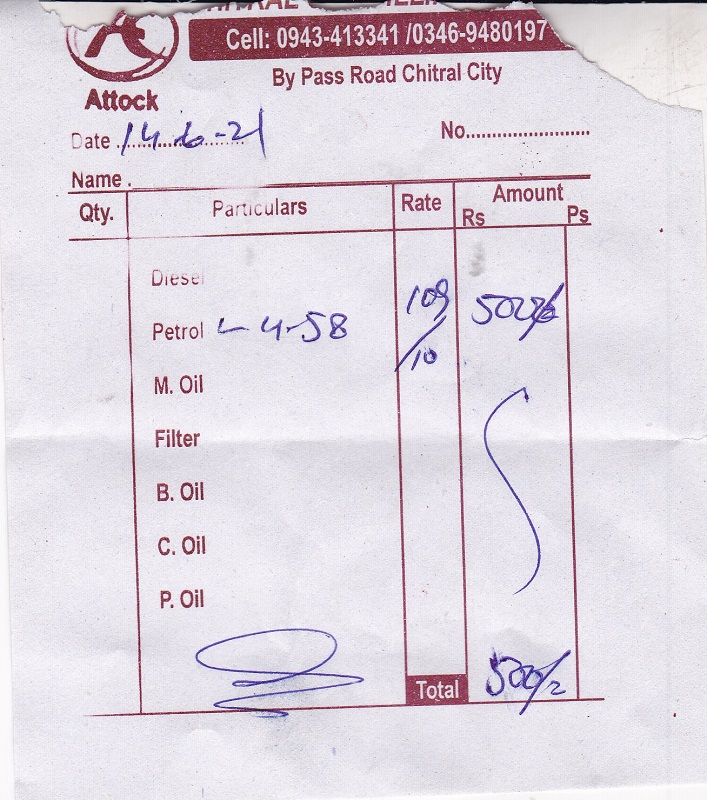 Cell: 0943-413341 /0346-9480197
By Pass Road Chitral City
Attock
Date 14-6-21
No.
Name
Qty. Particulars Rate Amount
Rs Ps
Diesel
Petrol L 4-58 109/10 500/-
M. Oil
Filter
B. Oil
C. Oil
P. Oil
Total 500/-